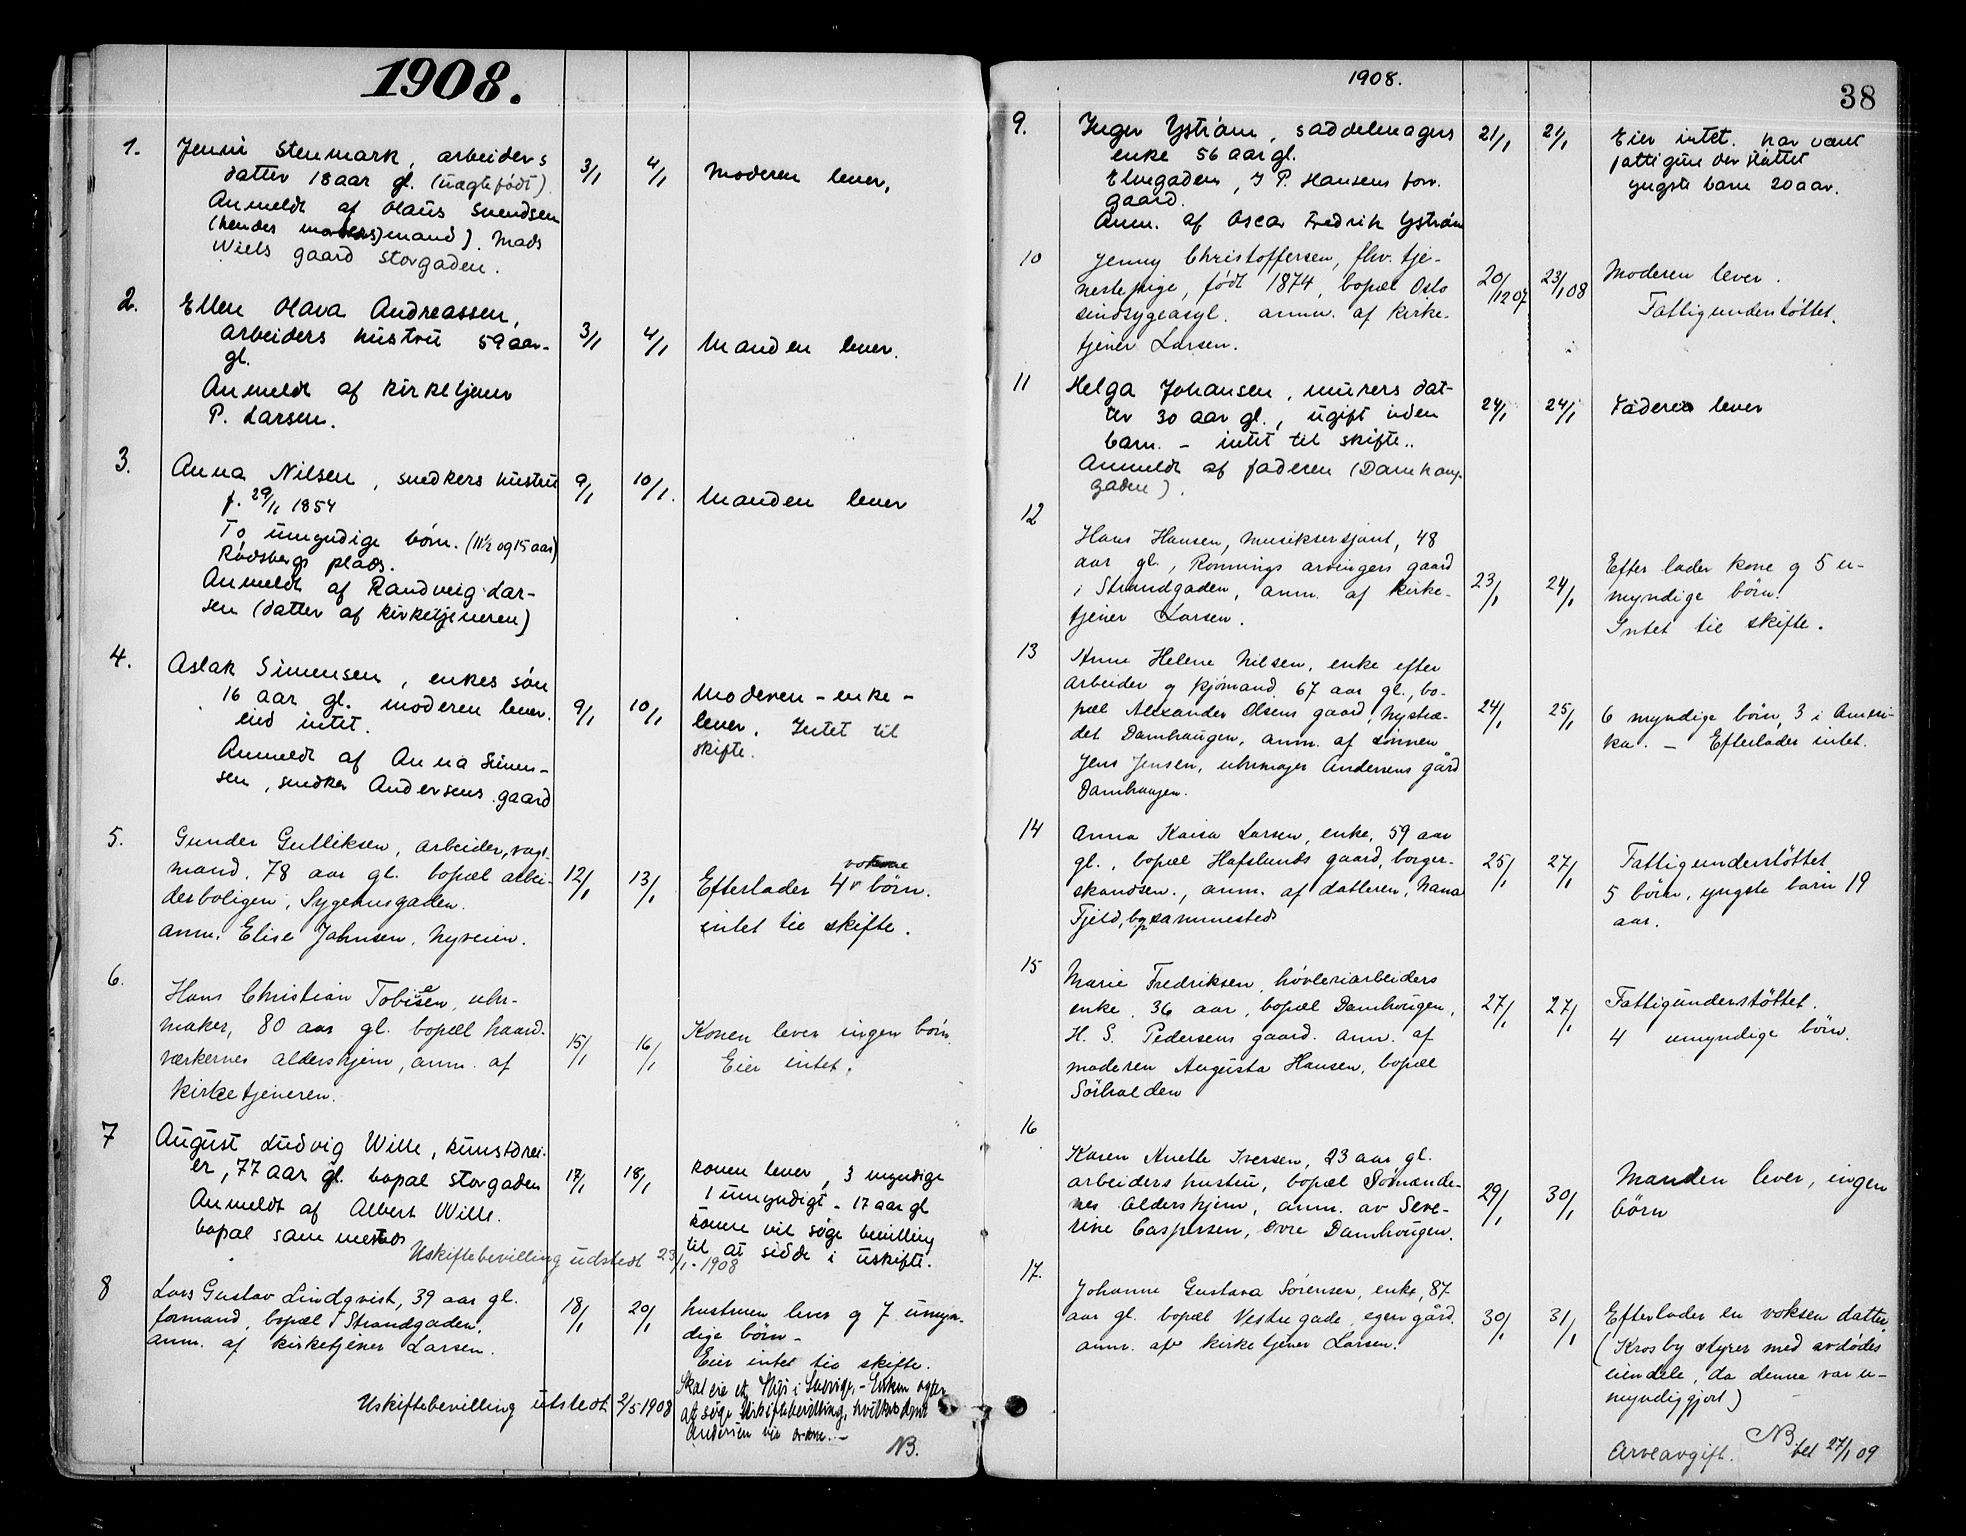 1908.
1. Jenni Stenmark, arbeiders 3/1 4/1 Moderen lever,
datter 18 aar gl. (uægtefødt).
Anmeldt af Olaus Svendsen
(hendes mand). Mads
Wiels gaard Storgaden.
2. Ellen Olava Andreassen,
arbeiders hustru 59 aar 3/1 4/1 Manden lever.
gl.
Anmeldt af kirketjener
P. Larsen.
3. Anna Nilsen, snedkers hustru 9/1 10/1. Manden lever
f. 29/11 1854
To umyndige børn. (11½ og 15 aar)
Rødsbergs plads.
Anmeldt af Randveig Lar-
sen (datter af kirketjeneren)
4. Aslak Simensen, enkes søn
16 aar gl. moderen lever. 9/1 10/1 Moderen - enke -
eied intet. lever. Intet til
skifte.
Anmeldt af Anna Simen-
sen, snedker Andersens gaard
5. Gunder Gulliksen, arbeider, vagt-
mand. 78 aar gl. bopæl arbei- 12/1 13/1 Efterlader 4 voksne børn.
derboligen, Sygehusgaden. intet til skifte.
anm. Elise Johnsen, Nyveien.
6. Hans Christian Tobisen, uhr-
maker, 80 aar gl. bopæl haand- 15/1 16/1 Konen lever ingen børn
værkernes aldershjem, anm. af Eier intet.
kirketjeneren.
7 August Ludvig Wille, kunstdrei-
er, 77 aar gl. bopæl Storgaden 17/1 18/1 konen lever, 3 myndige
Anmeldt af Albert Wille. 1 umyndigt - 17 aar gl
bopæl sammesteds konen vil søge bevilling
til at sidde i uskifte.
Uskiftebevilling udstedt 23/1-1908
8 Lars Gustav Lindqvist, 39 aar gl. 18/1 20/1 hustruen lever og 7 umyn-
formand, bopæl Strandgaden, dige børn -
anm. af kirketjener Larsen. Eier intet til skifte.
Skal eie et Hus i Sverige. - Enken agter
at søge Uskiftebevilling, hvilket
Andersen vil ordne. -
Uskiftebevilling utstedt 2/5 1908
NB.
1908.
38
9. Inger Ystrøm, saddelmagers 21/1 21/1 Eier intet. har vært
enke 56 aar gl. fattigunderstøttet
Elvegaden, J. P. Hansens forv. yngste barn 20 aar.
gaard.
Anm. af Oscar Fredrik Ystrøm
10 Jenny Christoffersen, fhv. tje- 20/12 07 23/1 08 Moderen lever.
nestepige, født 1874, bopæl Oslo Fattigunderstøttet.
sindsygeasyl. anm. af kirke-
tjener Larsen.
11 Helga Johansen, murers dat-
ter 30 aar gl., ugift uden 24/1 24/1 Faderen lever
barn. - intet til skifte..
Anmeldt af faderen (Damhaug-
gaden).
12
Hans Hansen, musiksersjant, 48
aar gl., Rønnings arvingers gaard 23/1 24/1 Efterlader kone og 5 u-
i Strandgaden, anm. af kirke- myndige børn.
tjener Larsen. Intet til skifte.
13 Anne Helene Nilsen, enke efter
arbeider og kjømand. 67 aar gl., bo-
pæl Alexander Olsens gaard, Nystræ- 24/1 25/1 6 myndige børn, 3 i Ameri-
det Damhaugen, anm. af sønnen ka. - Efterlader intet.
Jens Jensen, uhrmager Andersens gård
Damhaugen.
14 Anna Kaisa Larsen, enke, 59 aar
gl., bopæl Hafslunds gaard, borger- 25/1 27/1 Fattigunderstøttet
skandsen., anm. af datteren, Nana 5 børn, yngste barn 19
Fjeld, bop sammesteds aar.
15 Marie Fredriksen, høvleriarbeiders
enke, 36 aar, bopæl Damhaugen, 27/1 27/1 Fattigunderstøttet.
H. S. Pedersens gaard. anm. af 4 umyndige børn.
moderen Augusta Hansen, bopæl
Sørhalden
16
Karen Anette Iversen, 23 aar gl.
arbeiders hustru, bopæl Sømænde- 29/1 30/1 Manden lever, ingen
nes Aldershjem, anm. av Seve- børn
rine Caspersen, Øvre Damhougen.
17. Johanne Gustava Sørensen, enke, 87
aar gl. bopæl Vestre gade, egen gård. 30/1 31/1 Efterlader en voksen datter
anm. af kirketjener Larsen. (Krosby styrer med avdødes
eiendele, da denne var u-
myndiggjort)
NB.
Arveavgift. bet 27/1 09